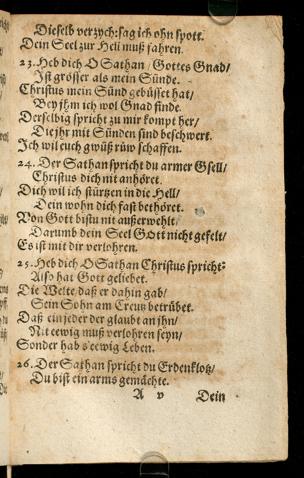 Dieselb verzych: sag ich ohn spott.
Dein Seel zur Hell muß fahren.
23. Heb dich O Sathan / Gottes Gnad /
Ist grösser als mein Sünde.
Christus mein Sünd gebüsset hat /
Bey jhm ich wol Gnad finde.
Derselbig spricht zu mir kompt her /
Die jhr mit Sünden sind beschwert.
Ich wil euch gwüß rüw schaffen.
24. Der Sathan spricht du armer Gsell /
Christus dich nit anhöret.
Dich wil ich stürtzen in die Hell /
Dein wohn dich fast bethöret.
Von Gott bistu nit außerwehlt /
Darumb dein Seel GOtt nicht gefelt /
Es ist mit dir verlohren.
25. Heb dich O Sathan Christus spricht:
Also hat Gott geliebet.
Die Welte daß er dahin gab /
Sein Sohn am Creutz betrübet.
Daß ein jeder der glaubt an jhn /
Nit eewig muß verlohren seyn /
Sonder hab s'eewig Leben.
26. Der Sathan spricht du Erdenklotz /
Du bist ein arms gemächte.
A v Dein